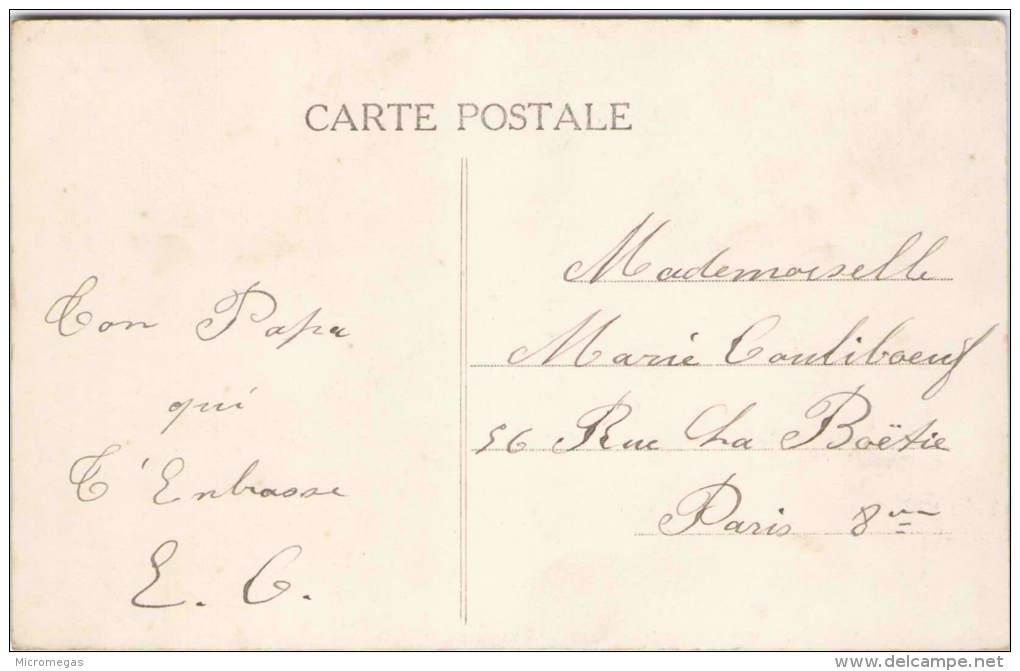 CARTE POSTALE
Ton Papa
qui
T'Enbrasse
E. C.
Mademoiselle
Marie Couliboeuf
56 Rue La Boëtie
Paris 8me
Micromegas
delcampe.net